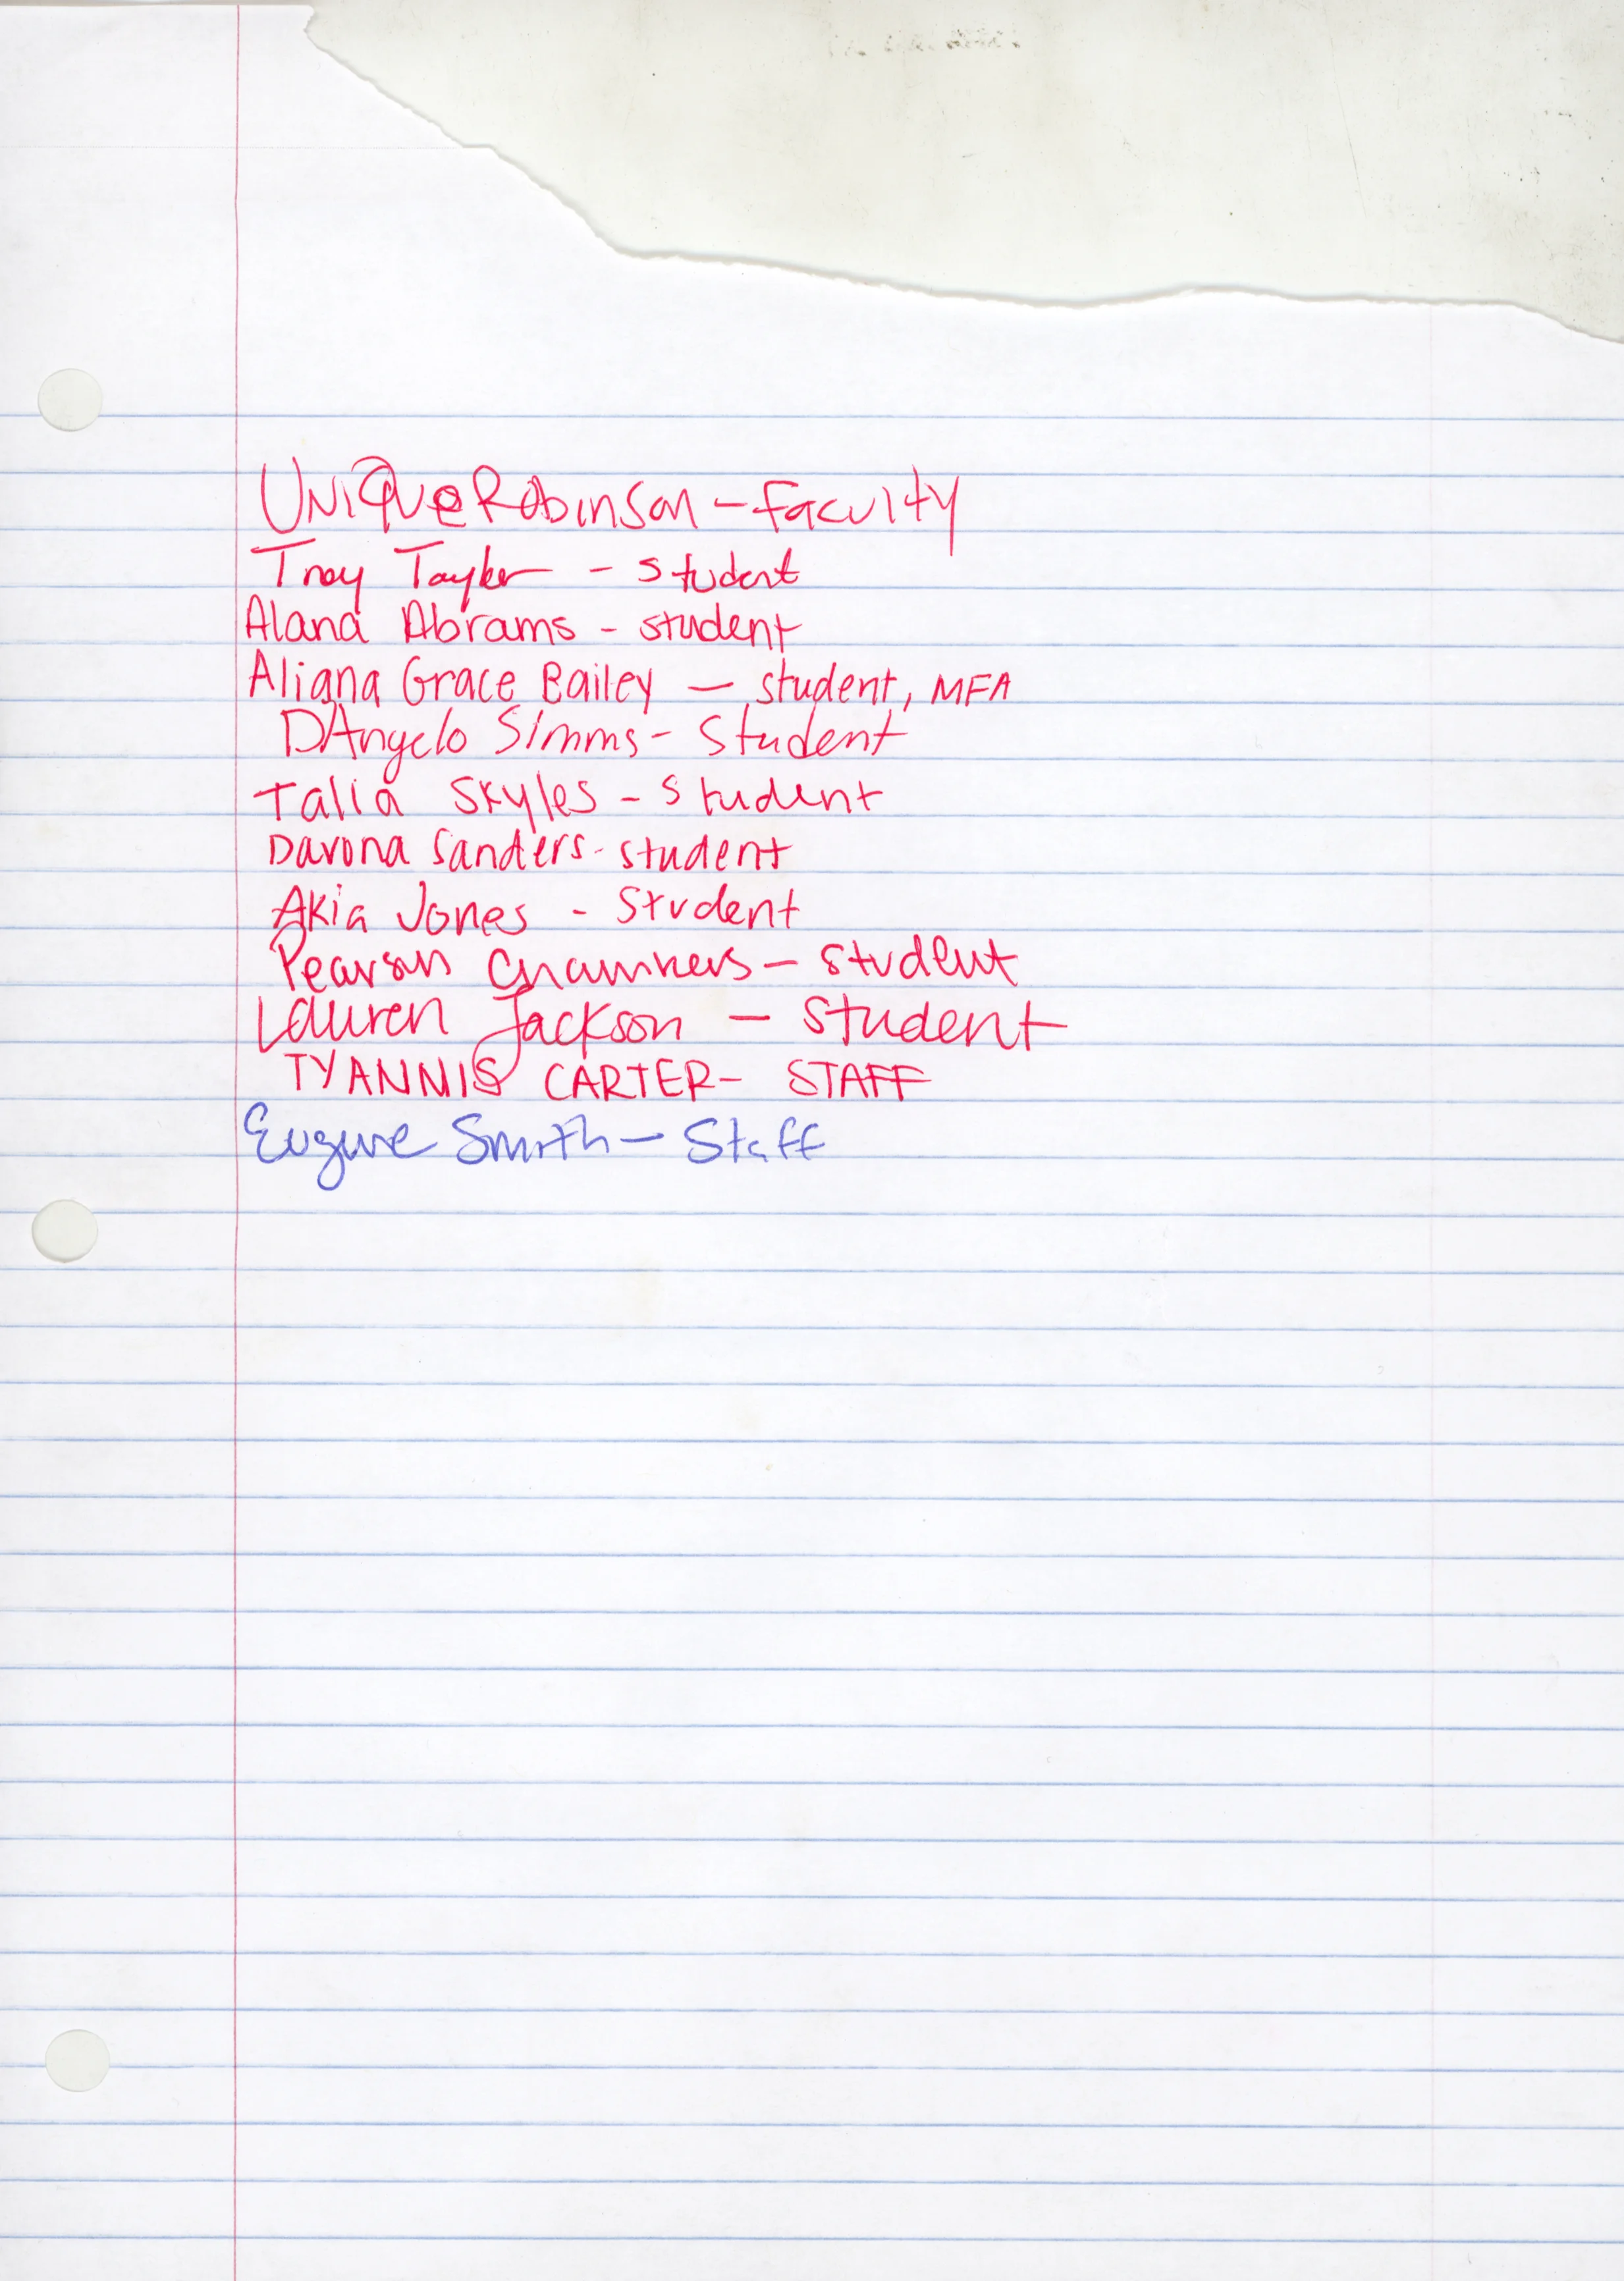 UNiQUe Robinson - Faculty
Troy Taylor - student
Alana Abrams - student
Aliana Grace Bailey - student, MFA
DAngelo Simms - Student
Talia Skyles - student
Davona Sanders - student
Akia Jones - Student
Pearson Chambers - student
Lauren Jackson - student
TYANNIS CARTER - STAFF
Eugene Smith - Staff